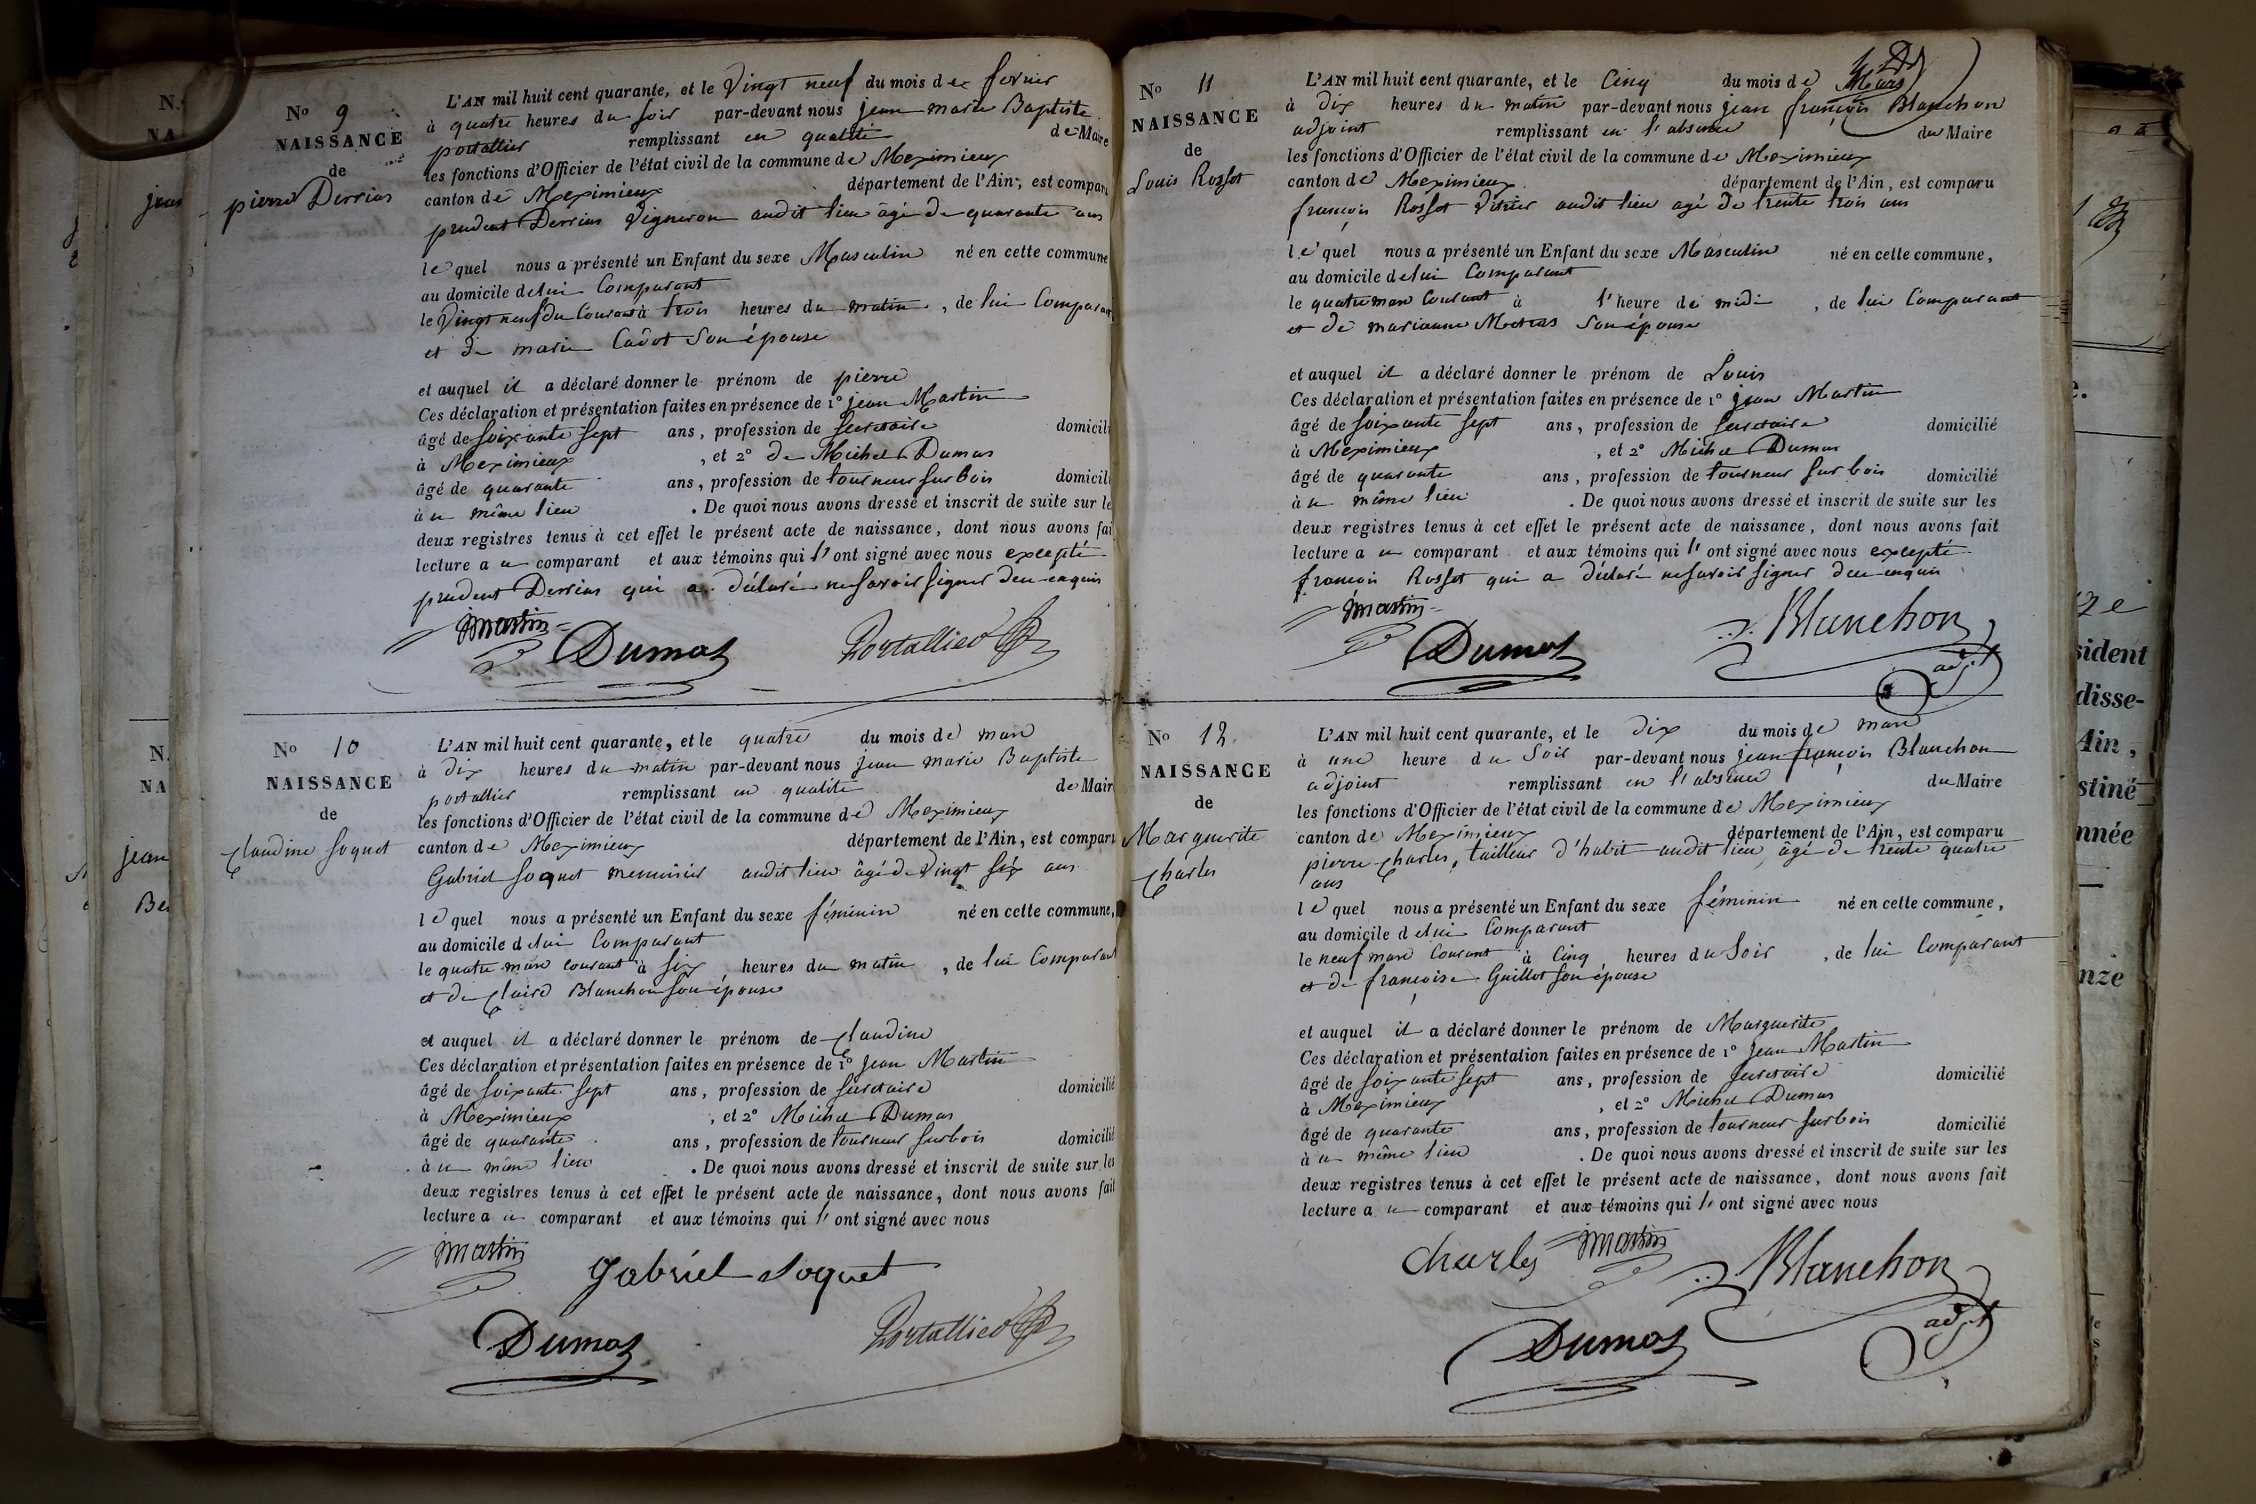 No 9
NAISSANCE
de
pierre Derrias
L'AN mil huit cent quarante, et le Vingt neuf du mois de fevrier
à quatre heures du soir par-devant nous jean marie Baptiste
portallier remplissant en qualité de Maire
les fonctions d'Officier de l'état civil de la commune de Meximieux
canton de Meximieux département de l'Ain, est comparu
prudent Derrias Vigneron audit lieu âgé de quarante ans
lequel nous a présenté un Enfant du sexe Masculin né en cette commune
au domicile de lui Comparant
le Vingt neuf du Courant à trois heures du matin, de lui Comparant
et de marie Cadot son épouse
et auquel il a déclaré donner le prénom de pierre
Ces déclaration et présentation faites en présence de 1° jean Martin
âgé de soixante sept ans, profession de secretaire domicilié
à Meximieux, et 2° de Michel Dumas
âgé de quarante ans, profession de tourneur sur bois domicilié
à u même lieu. De quoi nous avons dressé et inscrit de suite sur les
deux registres tenus à cet effet le présent acte de naissance, dont nous avons fait
lecture a u comparant et aux témoins qui l' ont signé avec nous excepté
prudent Derrias qui a déclaré ne savoir signer deu enquis
jmartin
Dumas
Portallier
No 10
NAISSANCE
de
Claudine Soquet
L'AN mil huit cent quarante, et le quatre du mois de mars
à dix heures du matin par-devant nous jean marie Baptiste
portallier remplissant en qualité de Maire
les fonctions d'Officier de l'état civil de la commune de Meximieux
canton de Meximieux département de l'Ain, est comparu
Gabriel Soquet menuisier audit lieu âgé de Vingt six ans
lequel nous a présenté un Enfant du sexe féminin né en cette commune,
au domicile de lui Comparant
le quatre mars courant à six heures du matin, de lui Comparant
et de Claire Blanchon son épouse
et auquel il a déclaré donner le prénom de Claudine
Ces déclaration et présentation faites en présence de 1° jean Martin
âgé de soixante sept ans, profession de secretaire domicilié
à Meximieux, et 2° Michel Dumas
âgé de quarante ans, profession de tourneur sur bois domicilié
à u même lieu. De quoi nous avons dressé et inscrit de suite sur les
deux registres tenus à cet effet le présent acte de naissance, dont nous avons fait
lecture a u comparant et aux témoins qui l' ont signé avec nous
jmartin
Gabriel Soquet
Dumas
Portallier
No 11
NAISSANCE
de
Louis Rosset
L'AN mil huit cent quarante, et le Cinq du mois de Mars
à dix heures du matin par-devant nous jean françois Blanchon
adjoint remplissant en l'absence du Maire
les fonctions d'Officier de l'état civil de la commune de Meximieux
canton de Meximieux département de l'Ain, est comparu
françois Rosset Vitrier audit lieu agé de trente trois ans
lequel nous a présenté un Enfant du sexe Masculin né en cette commune,
au domicile de lui Comparant
le quatre mars Courant à l'heure de midi, de lui Comparant
et de marianne son épouse
et auquel il a déclaré donner le prénom de Louis
Ces déclaration et présentation faites en présence de 1° jean Martin
âgé de soixante sept ans, profession de secretaire domicilié
à Meximieux, et 2° Michel Dumas
âgé de quarante ans, profession de tourneur sur bois domicilié
à u même lieu. De quoi nous avons dressé et inscrit de suite sur les
deux registres tenus à cet effet le présent acte de naissance, dont nous avons fait
lecture a u comparant et aux témoins qui l' ont signé avec nous excepté
françois Rosset qui a déclaré ne savoir signer deu enquis
jmartin
Dumas
Blanchon
adj.t
No 12
NAISSANCE
de
Marguerite
Charles
L'AN mil huit cent quarante, et le dix du mois de mars
à une heure du Soir par-devant nous jean françois Blanchon
adjoint remplissant en l'absence du Maire
les fonctions d'Officier de l'état civil de la commune de Meximieux
canton de Meximieux département de l'Ain, est comparu
pierre Charles, tailleur d'habit audit lieu, âgé de trente quatre
ans
lequel nous a présenté un Enfant du sexe féminin né en cette commune,
au domicile de lui Comparant
le neuf mars Courant à Cinq heures du Soir, de lui Comparant
et de françoise Guillot son épouse
et auquel il a déclaré donner le prénom de Marguerite
Ces déclaration et présentation faites en présence de 1° jean Martin
âgé de soixante sept ans, profession de secretaire domicilié
à Meximieux, et 2° Michel Dumas
âgé de quarante ans, profession de tourneur sur bois domicilié
à u même lieu. De quoi nous avons dressé et inscrit de suite sur les
deux registres tenus à cet effet le présent acte de naissance, dont nous avons fait
lecture a u comparant et aux témoins qui l' ont signé avec nous
Charles
jmartin
Blanchon
adj.t
Dumas